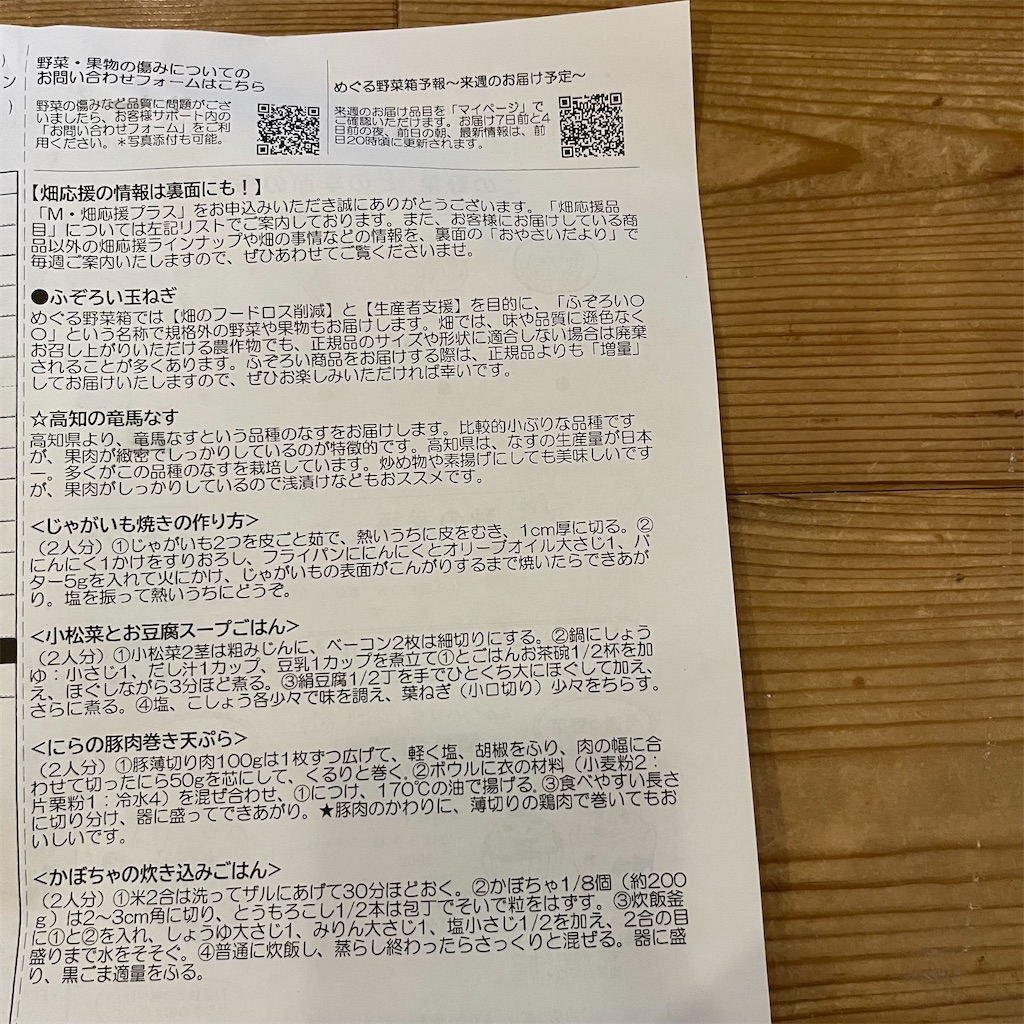 )
ン
)
野菜・果物の傷みについての
お問い合わせフォームはこちら
野菜の傷みなど品質に問題がござ
いましたら、お客様サポート内の
「お問い合わせフォーム」をご利
用ください。*写真添付も可能。
めぐる野菜箱予報～来週のお届け予定～
来週のお届け品目を「マイページ」で
ご確認いただけます。お届け7日前と4
日前の夜、前日の朝、最新情報は、前
日20時頃に更新されます。
【畑応援の情報は裏面にも！】
「M・畑応援プラス」をお申込みいただき誠にありがとうございます。「畑応援品
目」については左記リストでご案内しております。また、お客様にお届けしている商
品以外の畑応援ラインナップや畑の事情などの情報を、裏面の「おやさいだより」で
毎週ご案内いたしますので、ぜひあわせてご覧くださいませ。
●ふぞろい玉ねぎ
めぐる野菜箱では【畑のフードロス削減】と【生産者支援】を目的に、「ふぞろい〇
〇」という名称で規格外の野菜や果物もお届けします。畑では、味や品質に遜色なく
お召し上がりいただける農作物でも、正規品のサイズや形状に適合しない場合は廃棄
されることが多くあります。ふぞろい商品をお届けする際は、正規品よりも「増量」
してお届けいたしますので、ぜひお楽しみいただければ幸いです。
☆高知の竜馬なす
高知県より、竜馬なすという品種のなすをお届けします。比較的小ぶりな品種です
が、果肉が緻密でしっかりしているのが特徴的です。高知県は、なすの生産量が日本
一。多くがこの品種のなすを栽培しています。炒め物や素揚げにしても美味しいです
が、果肉がしっかりしているので浅漬けなどもおススメです。
<じゃがいも焼きの作り方>
（2人分）①じゃがいも2つを皮ごと茹で、熱いうちに皮をむき、1cm厚に切る。②
にんにく1かけをすりおろし、フライパンににんにくとオリーブオイル大さじ1、バ
ター5gを入れて火にかけ、じゃがいもの表面がこんがりするまで焼いたらできあが
り。塩を振って熱いうちにどうぞ。
<小松菜とお豆腐スープごはん>
（2人分）①小松菜2茎は粗みじんに、ベーコン2枚は細切りにする。②鍋にしょう
ゆ：小さじ1、だし汁1カップ、豆乳1カップを煮立て①とごはんお茶碗1/2杯を加
え、ほぐしながら3分ほど煮る。③絹豆腐1/2丁を手でひとくち大にほぐして加え、
さらに煮る。④塩、こしょう各少々で味を調え、葉ねぎ（小口切り）少々をちらす。
<にらの豚肉巻き天ぷら>
（2人分）①豚薄切り肉100gは1枚ずつ広げて、軽く塩、胡椒をふり、肉の幅に合
わせて切ったにら50gを芯にして、くるりと巻く。②ボウルに衣の材料（小麦粉2：
片栗粉1：冷水4）を混ぜ合わせ、①につけ、170℃の油で揚げる。③食べやすい長さ
に切り分け、器に盛ってできあがり。★豚肉のかわりに、薄切りの鶏肉で巻いてもお
いしいです。
<かぼちゃの炊き込みごはん>
（2人分）①米2合は洗ってザルにあげて30分ほどおく。②かぼちゃ1/8個（約200
g）は2～3cm角に切り、とうもろこし1/2本は包丁でそいで粒をはずす。③炊飯釜
に①と②を入れ、しょうゆ大さじ1、みりん大さじ1、塩小さじ1/2を加え、2合の目
盛りまで水をそそぐ。④普通に炊飯し、蒸らし終わったらさっくりと混ぜる。器に盛
り、黒ごま適量をふる。